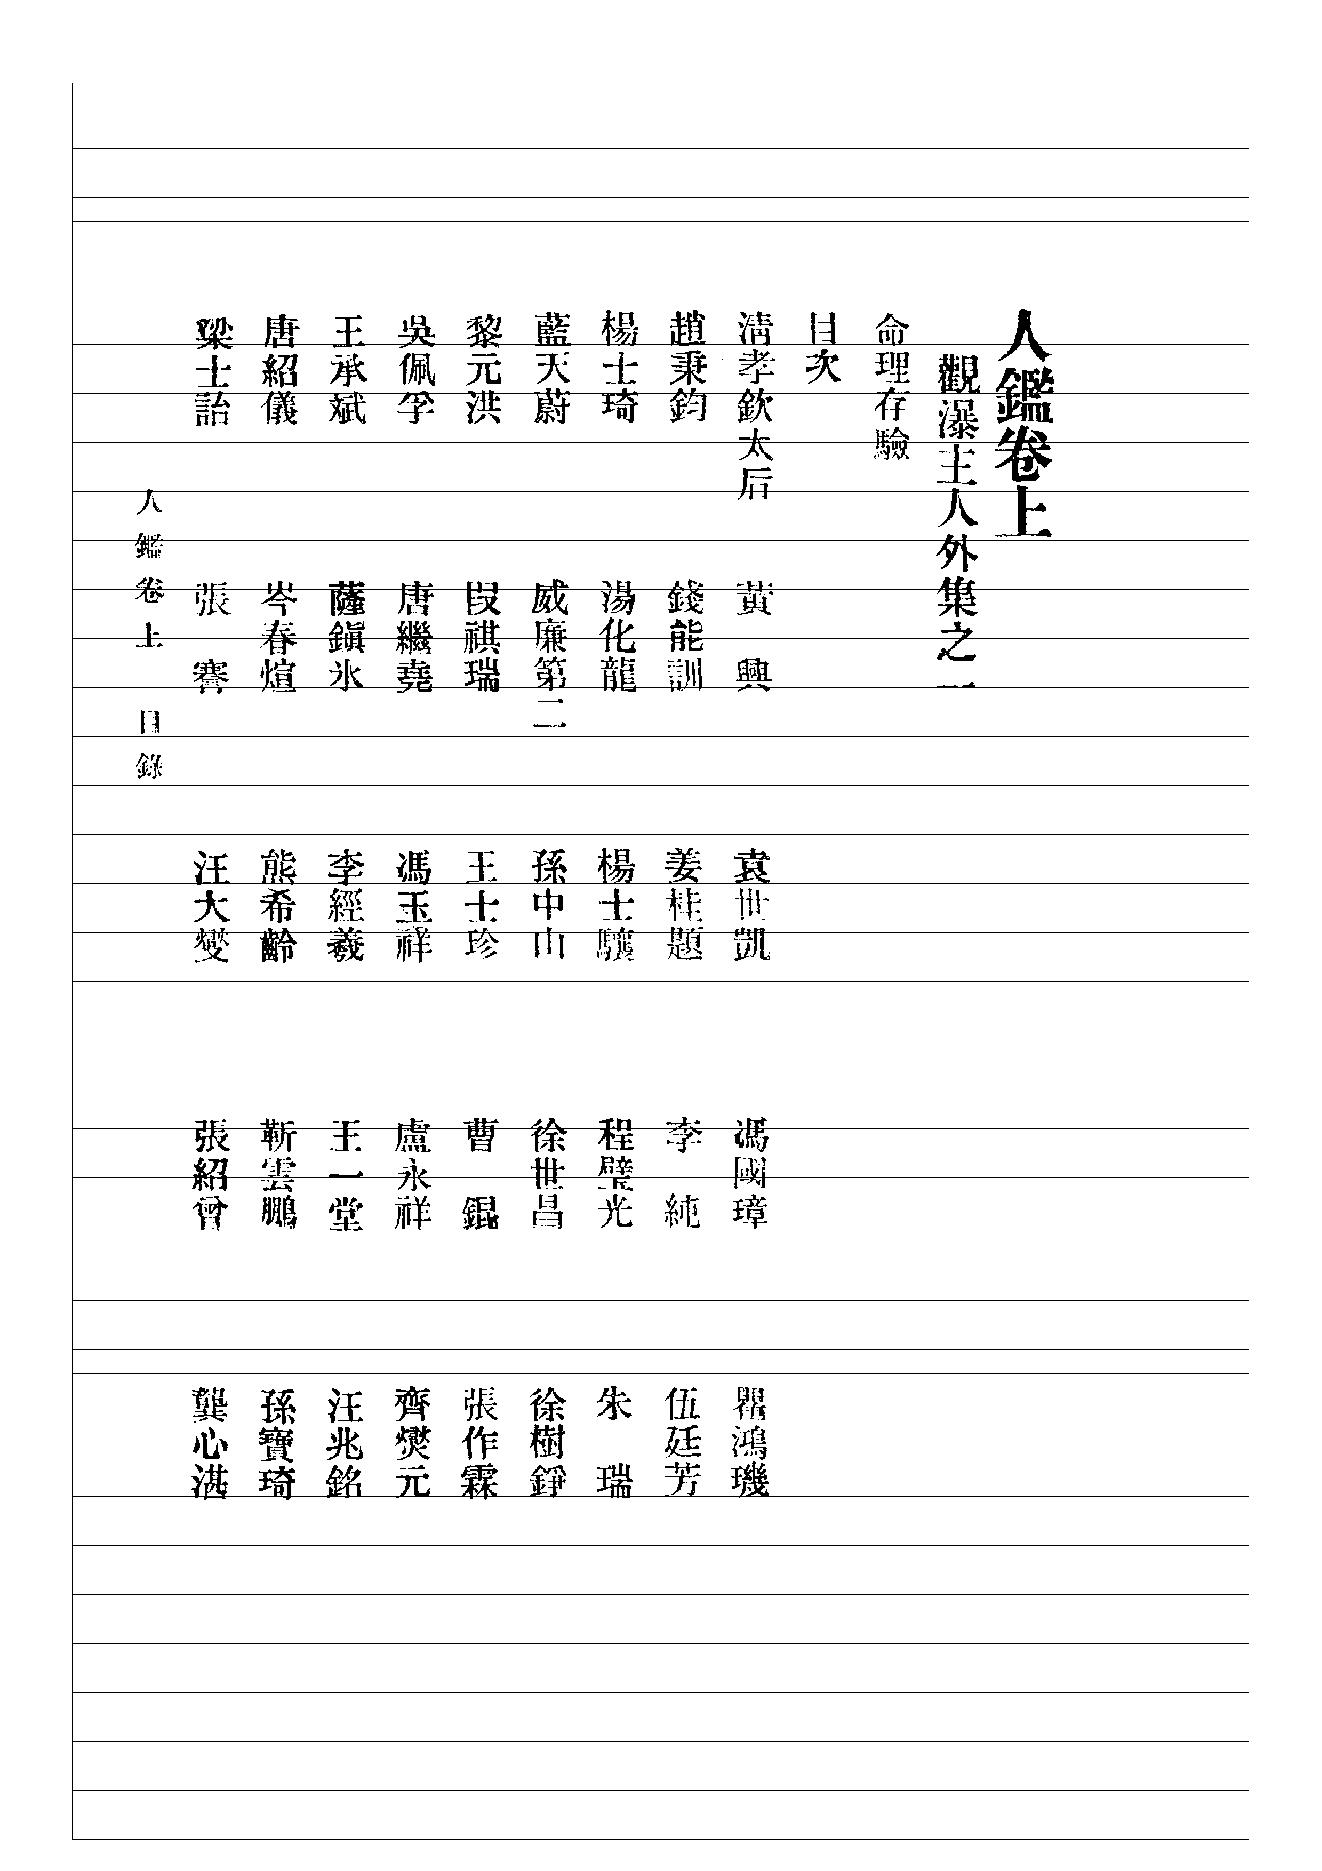 人鑑卷上
觀瀑主人外集之一
命理存驗
目次
淸孝欽太后 黃 興 袁世凱 馮國璋 瞿鴻璣
趙秉鈞 錢能訓 姜桂題 李 純 伍廷芳
楊士琦 湯化龍 楊士驤 程璧光 朱 瑞
藍天蔚 威廉第二 孫中山 徐世昌 徐樹錚
黎元洪 段祺瑞 王士珍 曹 錕 張作霖
吳佩孚 唐繼堯 馮玉祥 盧永祥 齊燮元
王承斌 薩鎭氷 李經羲 王一堂 汪兆銘
唐紹儀 岑春煊 熊希齡 靳雲鵬 孫寶琦
梁士詒 張 謇 汪大燮 張紹曾 龔心湛
人鑑卷上 目錄